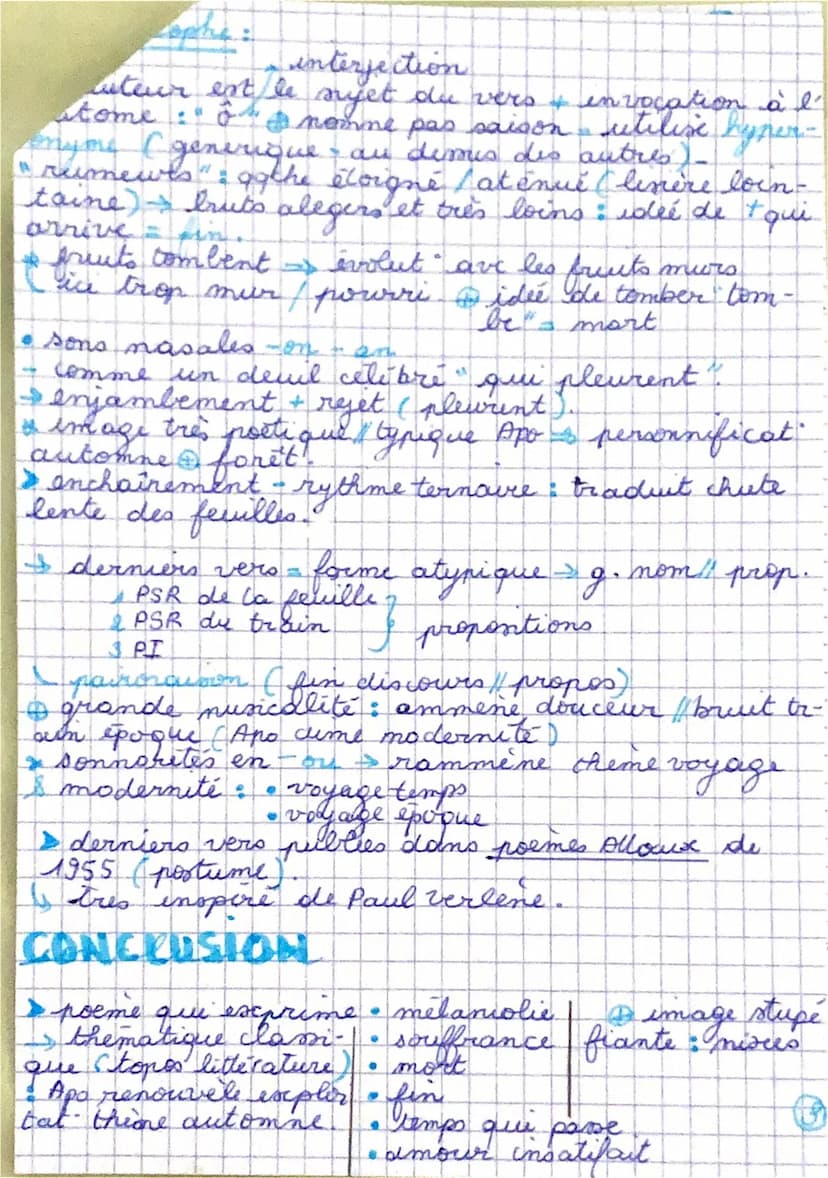 ophe :
interjection
auteur est le sujet du vers + invocation à l'
utome : " ô " ⊕ nomme pas saison = utilise hyper-
onyme (générique = au dessus des autres)-
"rumeurs" : qqche éloigné / aténué (lisière loin-
taine) → bruits alegers et très loins : idée de + qui
arrive = fin.
* fruits tombent → évolut° avc les fruits murs
( ici trop mur / pourri ⊕ idée de tomber "tom-
be" = mort
• sons nasales -on -an
- comme un deuil célébré "qui pleurent".
→ enjambement + rejet (pleurent).
* image très poétique // typique Apo → personnificat°
automne ⊕ forêt.
➤ enchaînement - rythme ternaire : traduit chute
lente des feuilles.
→ derniers vers = forme atypique → g. nom // prop.
1 PSR de la feuille
2 PSR du train } propositions
3 PI
( fin discours // propos)
⊕ grande musicalité : ammène douceur // bruit tr-
ain époque (Apo aime modernité)
* sonnorités en -ou → rammène thème voyage
& modernité : • voyage temps
• voyage époque
➤ derniers vers publiés dans poèmes à Loux de
1955 (postume).
↳ très inspiré de Paul Verlène.
CONCLUSION
➤ poème qui exprime • mélancolie ⊕ image stupé
→ thématique classi- • souffrance fiante : nixes
que (topos littérature) • mort
: Apo renouvèle exploi • fin
tat° thème automne. • temps qui passe
• amour insatifait